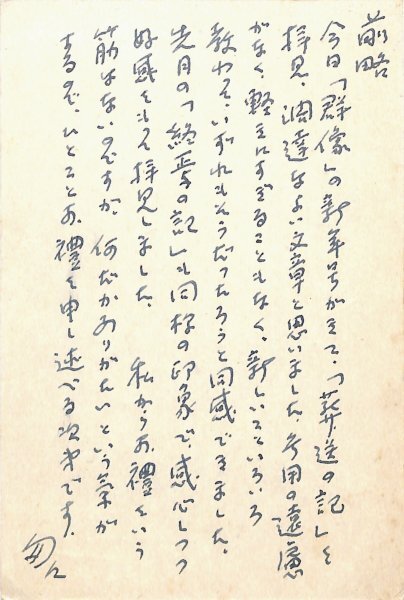 前略
今日「群像」の新年号がきて、「葬送の記」を
拝見、濶達なよい文章と思いました。無用の遠慮
がなく、軽きにすぎることもなく、新しいこといろいろ
教わって、いずれもそうだったろうと同感できました。
先月の「終焉の記」も同様の印象で、感心しつつ
好感をもって拝見しました。 私からお禮をいう
筋はないのですが、何だかありがたいという気が
するので、ひとことお禮を申し述べる次第です。
匆々